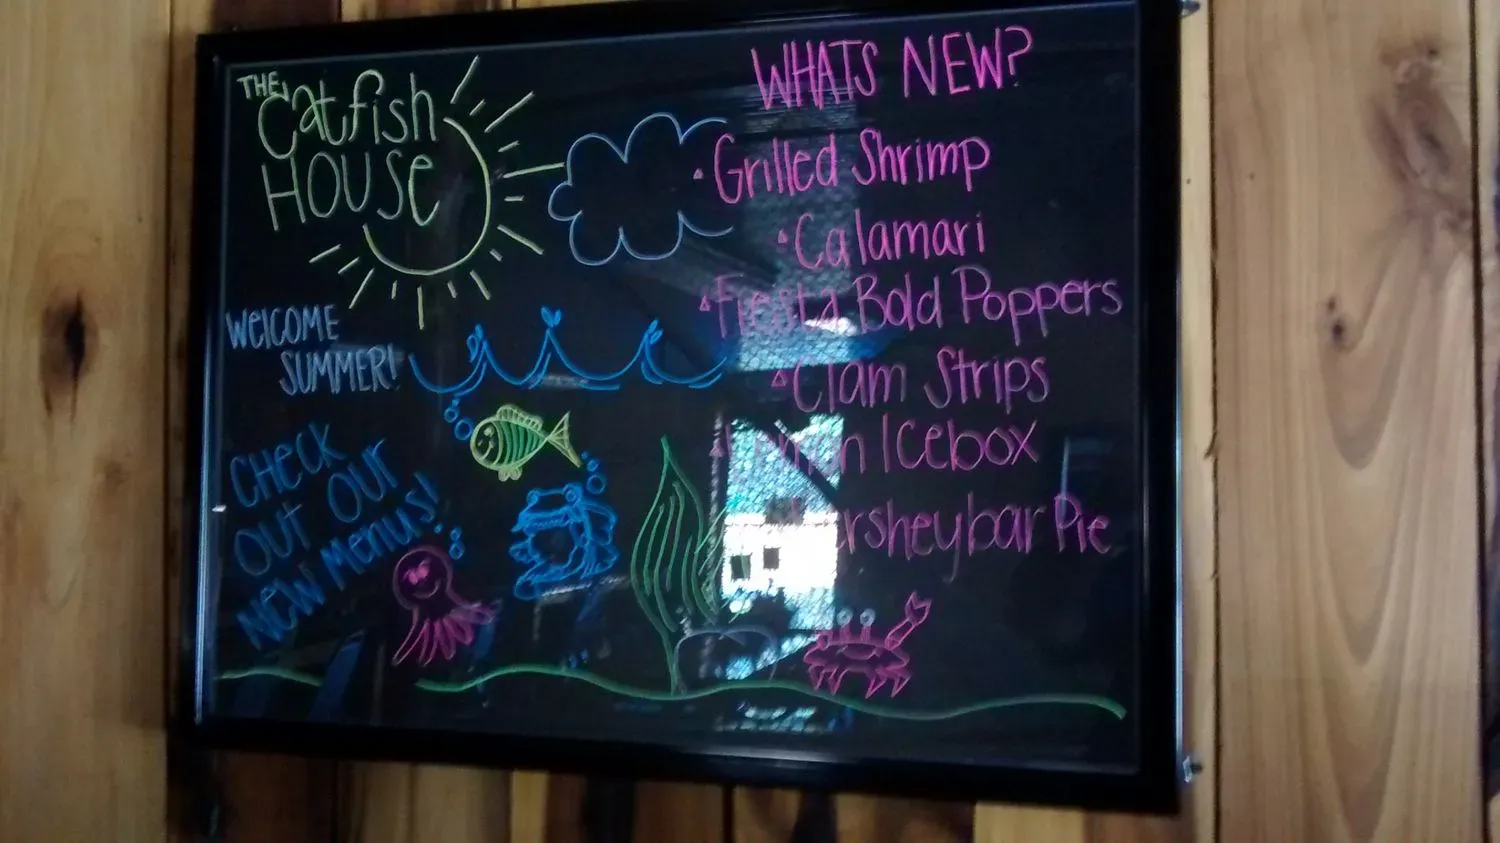 THE
Catfish
HOUSE
WElCOME
SUMMER!
CHECK
OUT OUr
NEW Menus!
WHATS NEW?
Grilled Shrimp
Calamari
Fiesta Bold Poppers
Clam Strips
Icebox
Pie